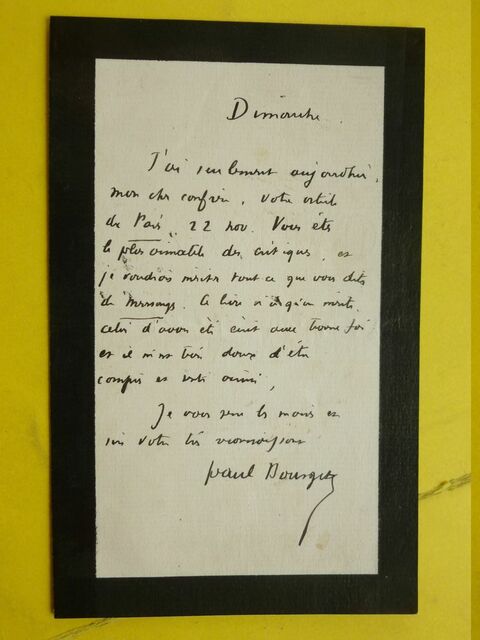 Dimanche.
J'ai seulement aujourd'hui,
mon cher confrère, votre article
de Paris, 22 nov. Vous êtes
le plus aimable des critiques, et
je voudrais mériter tout ce que vous dites
de Mensonges. Ce livre n'a qu'un mérite,
celui d'avoir été écrit avec bonne foi
et il m'est très doux d'être
compris et senti ainsi,
Je vous serre les mains et
suis votre très reconnaissant
Paul Bourget